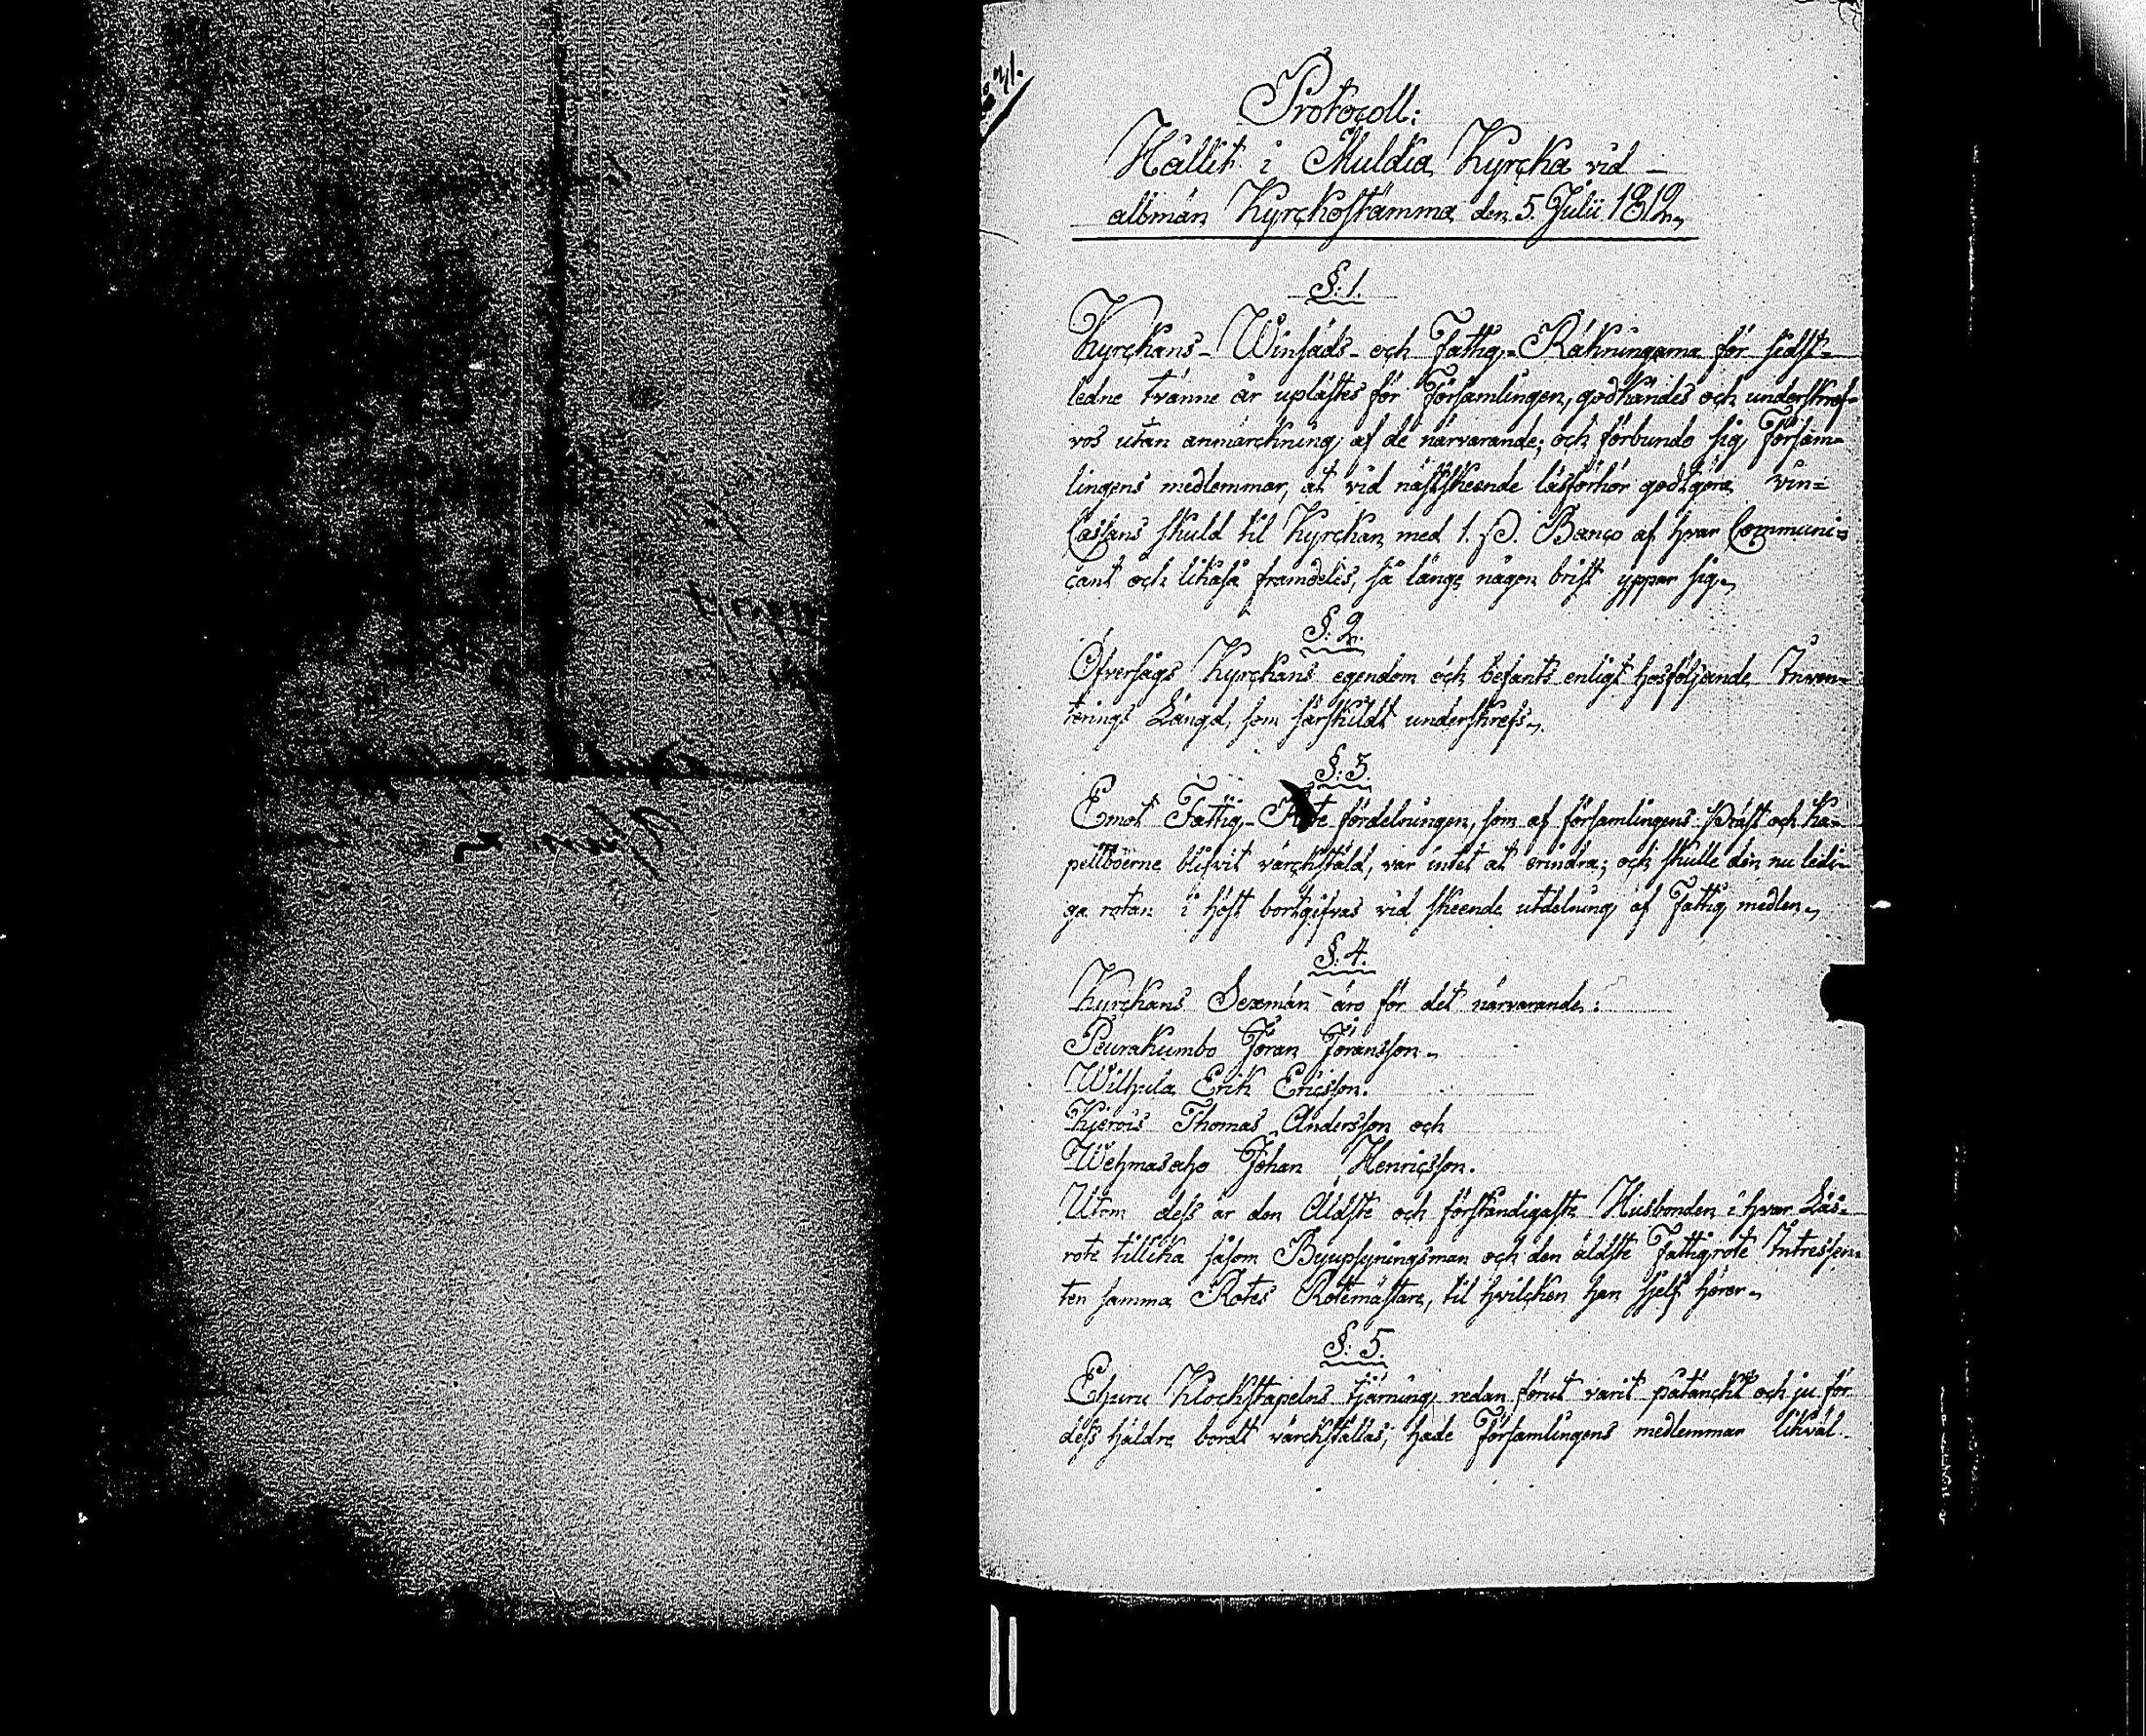 Protocoll:
Hållit i Muldia Kyrcka vid
allmän Kyrckostämma den 5. Julii 1812,
§. 1.
Kyrckans- Winsäds- och Fattig-Räkningarna för sidst-
ledne tvänne år uplästes för Församlingen, godkändes och underskref-
vos utan anmärckning af de närvarande; och förbundo sig Försam-
lingens medlemmar, at vid nästskeende läsförhör godtgöra vin-
Cassans skuld til Kyrckan med 1. ß. Banco af hvar Communi-
cant och likaså framdeles, så länge någon brist yppar sig.
§. 2.
Öfversågs Kyrckans egendom och befants enligt hosföljande Inven-
terings Längd, som särskildt underskrefs.
§. 3.
Emot Fattig-Rote fördelningen, som af församlingens Präst och Ka-
pellboerne blifvit värckstäld, var intet at erindra; och skulle den nu ledi-
ga rotan i höst bortgifvas vid skeende utdelning af Fattig medlen.
§. 4.
Kyrckans Sexmän äro för det närvarande:
Peurakumbo Jöran Jöransson.
Wilhula Erik Ericsson.
Thomas Andersson och
Wehmasaho Johan Henricsson.
Utom dess är den Äldste och förståndigaste Husbonden i hvar Läs-
rote tillika såsom Byupsyningsman och den äldste Fattigrote Intressen-
ten samma Rotes Rotemästare, til hvilcken han sjelf hörer.
§. 5.
Ehuru Klockstapelns tjärning redan förut varit påtänckt och ju för
dess häldre bordt värckställas; hade Församlingens medlemmar likväl